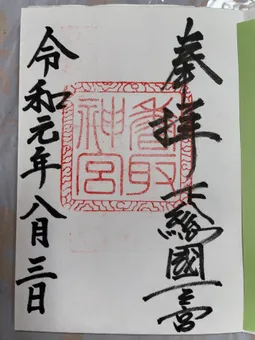 奉拝 下総國一宮
香取神宮
令和元年八月三日